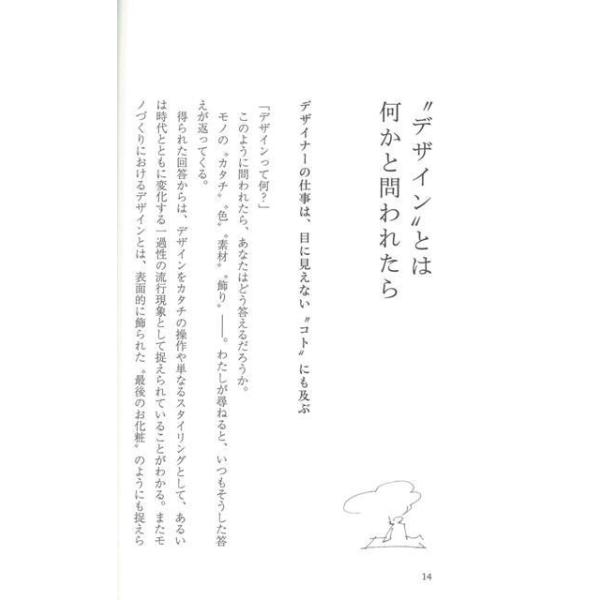 〝デザイン〟とは
何かと問われたら
デザイナーの仕事は、目に見えない〝コト〟にも及ぶ
「デザインって何？」
このように問われたら、あなたはどう答えるだろうか。
モノの〝カタチ〟〝色〟〝素材〟〝飾り〟――。わたしが尋ねると、いつもそうした答
えが返ってくる。
得られた回答からは、デザインをカタチの操作や単なるスタイリングとして、あるい
は時代とともに変化する一過性の流行現象として捉えられていることがわかる。またモ
ノづくりにおけるデザインとは、表面的に飾られた〝最後のお化粧〟のようにも捉えら
14